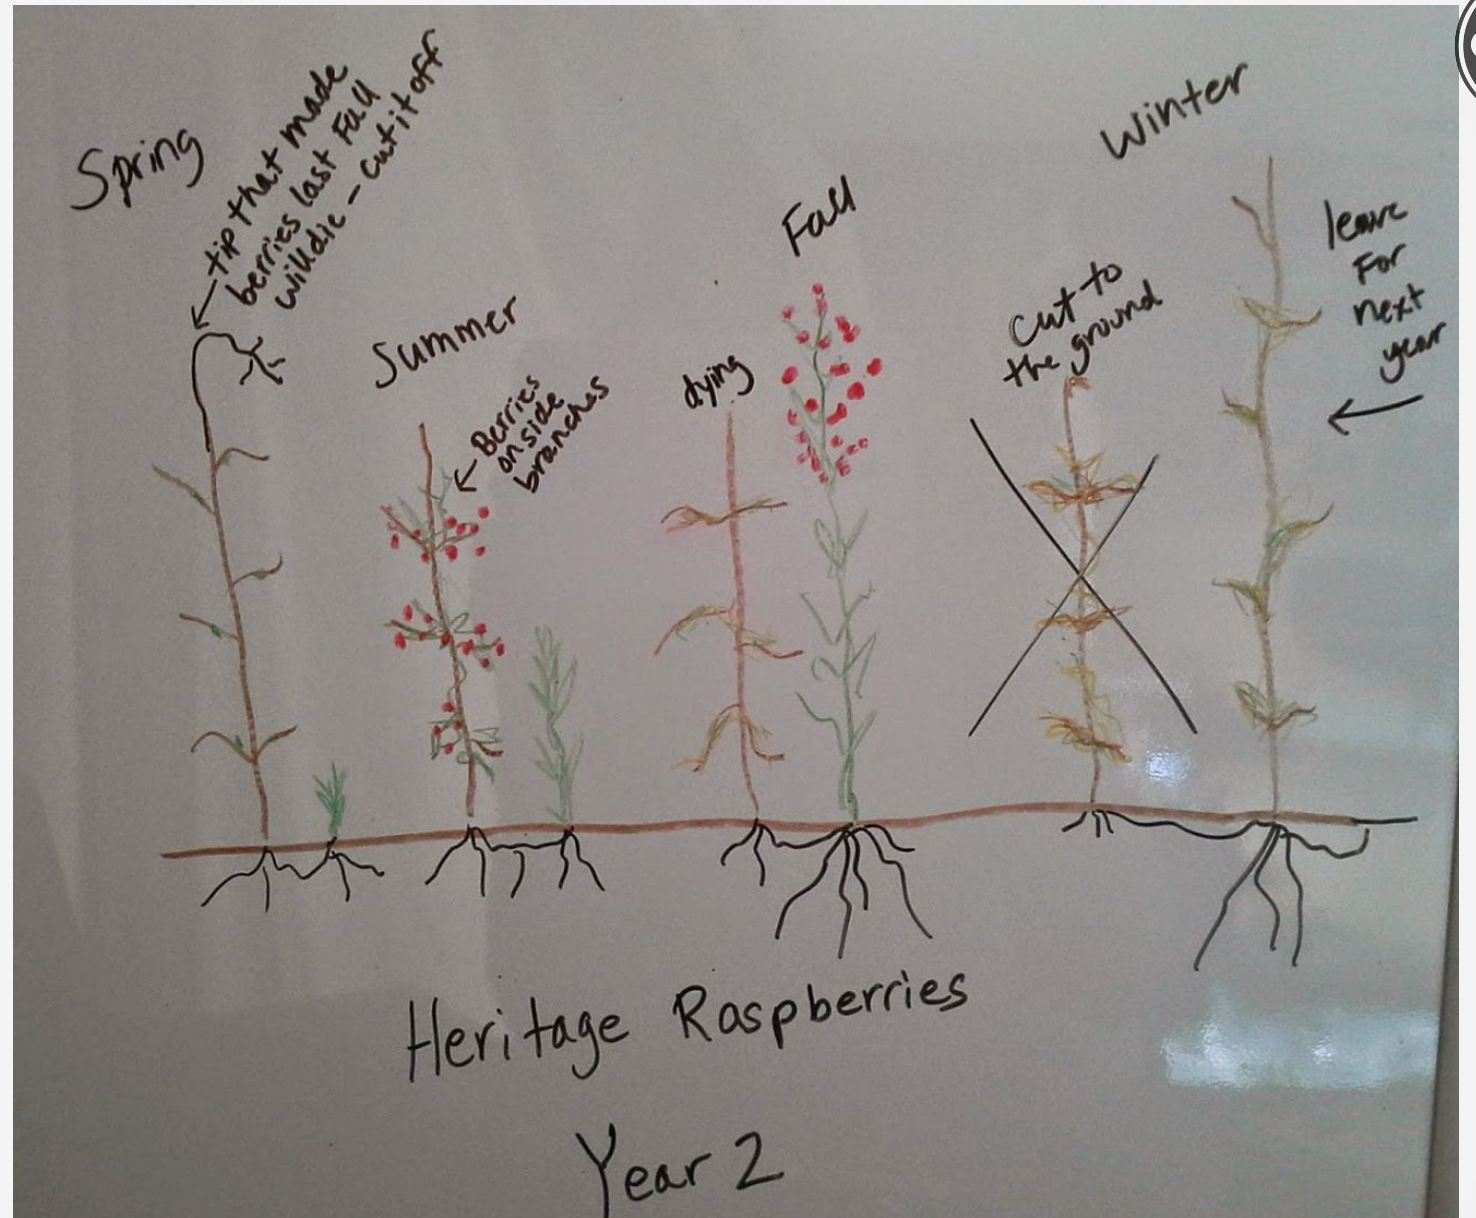 Spring
tip that made
berries last Fall
will die - cut it off
Summer
Berries
on side
branches
dying
Fall
cut to
the ground
Winter
leave
For
next
year
Heritage Raspberries
Year 2